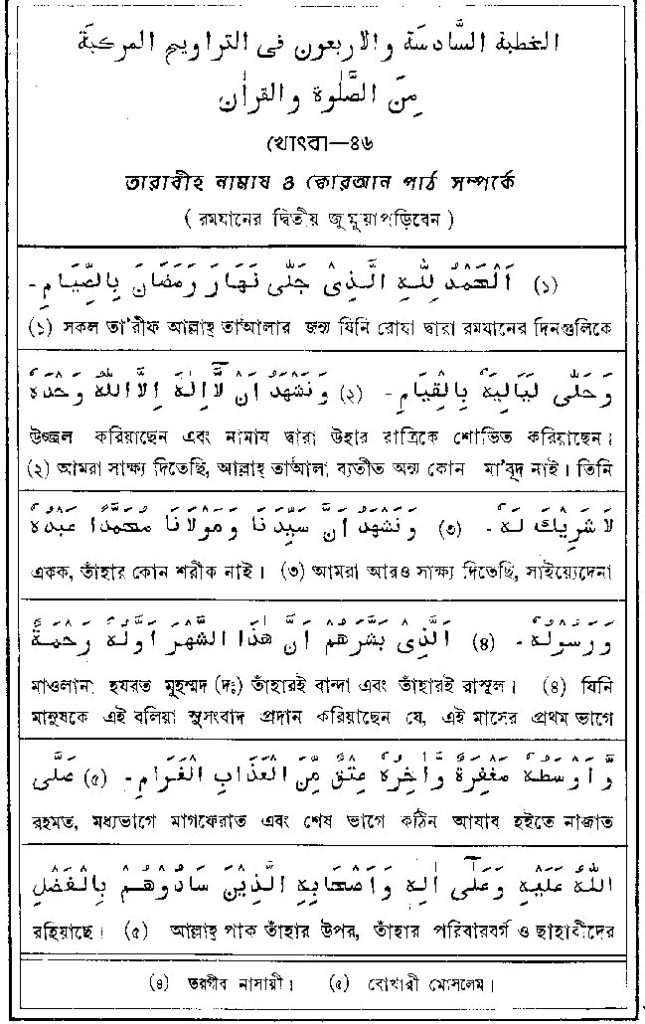 الخطبة السَّادسَة والاربعون فى التراويح المركبة
مِنَ الصَّلٰوة والقراٰن
খোৎবা—৪৬
তারাবীহ নামায ও কোরআন পাঠ সম্পর্কে
( রমযানের দ্বিতীয় জুমুয়া পড়িবেন )
(১) اَلْحَمْدُ لِلّٰهِ الَّذِىْ جَلّٰى نَهَارَ رَمَضَانَ بِالصِّيَامِ -
(১) সকল তা'রীফ আল্লাহ্ তা'আলার জন্য যিনি রোযা দ্বারা রমযানের দিনগুলিকে
وَحَلّٰى لَيَالِيَهٗ بِالْقِيَامِ - (২) وَنَشْهَدُ اَنْ لَّآ اِلٰهَ اِلَّا اللّٰهُ وَحْدَهٗ
উজ্জল করিয়াছেন এবং নামায দ্বারা উহার রাত্রিকে শোভিত করিয়াছেন।
(২) আমরা সাক্ষ্য দিতেছি, আল্লাহ্ তা'আলা ব্যতীত অন্য কোন মা'বূদ নাই। তিনি
لَا شَرِيْكَ لَهٗ - (৩) وَنَشْهَدُ اَنَّ سَيِّدَنَا وَمَوْلَانَا مُحَمَّدًا عَبْدُهٗ
একক, তাঁহার কোন শরীক নাই। (৩) আমরা আরও সাক্ষ্য দিতেছি, সাইয়্যেদেনা
وَرَسُوْلُهٗ - (৪) اَلَّذِىْ بَشَّرَهُمْ اَنَّ هٰذَا الشَّهْرَ اَوَّلُهٗ رَحْمَةٌ
মাওলানা হযরত মুহম্মদ (দঃ) তাঁহারই বান্দা এবং তাঁহারই রাসূল। (৪) যিনি
মানুষকে এই বলিয়া সুসংবাদ প্রদান করিয়াছেন যে, এই মাসের প্রথম ভাগে
وَّاَوْسَطُهٗ مَغْفِرَةٌ وَّاٰخِرُهٗ عِتْقٌ مِّنَ الْعَذَابِ الْغَرَامِ - (৫) صَلَّى
রহমত, মধ্যভাগে মাগফেরাত এবং শেষ ভাগে কঠিন আযাব হইতে নাজাত
اللّٰهُ عَلَيْهِ وَعَلٰٓى اٰلِهٖ وَاَصْحَابِهِ الَّذِيْنَ سَادُوْهُمْ بِالْفَضْلِ
রহিয়াছে। (৫) আল্লাহ্ পাক তাঁহার উপর, তাঁহার পরিবারবর্গ ও ছাহাবীদের
(৪) তরগীব নাসায়ী। (৫) বোখারী মোসলেম।